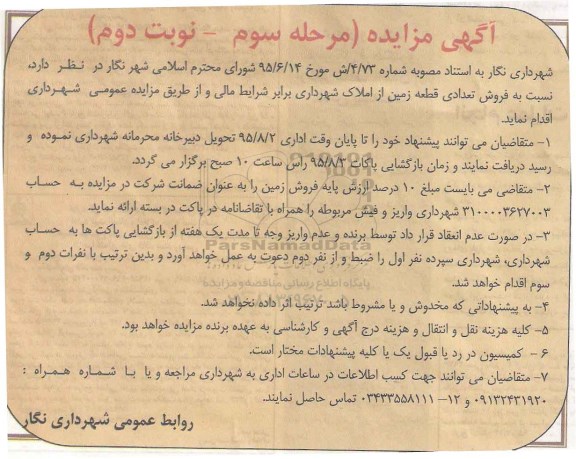 آگهی مزایده (مرحله سوم - نوبت دوم)
شهرداری نگار به استناد مصوبه شماره ۴/۷۳/ش مورخ ۹۵/۶/۱۴ شورای محترم اسلامی شهر نگار در نظر دارد،
نسبت به فروش تعدادی قطعه زمین از املاک شهرداری برابر شرایط مالی و از طریق مزایده عمومی شهرداری
اقدام نماید.
۱- متقاضیان می توانند پیشنهاد خود را تا پایان وقت اداری ۹۵/۸/۲ تحویل دبیرخانه محرمانه شهرداری نموده و
رسید دریافت نمایند و زمان بازگشایی پاکات ۹۵/۸/۳ راس ساعت ۱۰ صبح برگزار می گردد.
۲- متقاضی می بایست مبلغ ۱۰ درصد ارزش پایه فروش زمین را به عنوان ضمانت شرکت در مزایده به حساب
۳۱۰۰۰۰۳۶۲۷۰۰۳ شهرداری واریز و فیش مربوطه را همراه با تقاضانامه در پاکت در بسته ارائه نماید.
۳- در صورت عدم انعقاد قرار داد توسط برنده و عدم واریز وجه تا مدت یک هفته از بازگشایی پاکت ها به حساب
شهرداری، شهرداری سپرده نفر اول را ضبط و از نفر دوم دعوت به عمل خواهد آورد و بدین ترتیب با نفرات دوم و
سوم اقدام خواهد شد.
ParsNamadData
پایگاه اطلاع رسانی مناقصه و مزایده
۴- به پیشنهاداتی که مخدوش و یا مشروط باشد ترتیب اثر داده نخواهد شد.
۵- کلیه هزینه نقل و انتقال و هزینه درج آگهی و کارشناسی به عهده برنده مزایده خواهد بود.
۶- کمیسیون در رد یا قبول یک یا کلیه پیشنهادات مختار است.
۷- متقاضیان می توانند جهت کسب اطلاعات در ساعات اداری به شهرداری مراجعه و یا با شماره همراه :
۰۹۱۳۲۴۳۱۹۲۰ و ۱۲- ۰۳۴۳۳۵۵۸۱۱۱ تماس حاصل نمایند.
روابط عمومی شهرداری نگار